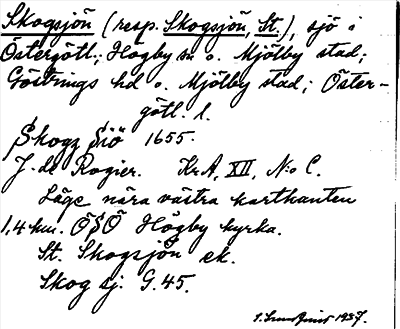 Skogsjön (resp. Skogsjön, St.), sjö i
Östergötl.; Högby sn o. Mjölby stad;
Göstrings hd o. Mjölby stad; Öster-
götl. l.
Skogz Siö 1655.
J. de Rogier. KrA, XII, N:o C.
Läge nära västra kartkanten
1,4 km. ÖSÖ Högby kyrka.
St. Skogsjön ek.
Skog sj. G.45.
1937.